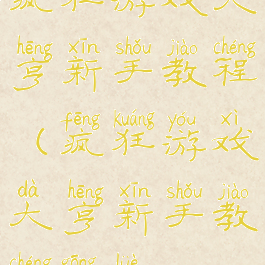 hēng xīn shǒu jiào chéng
亨新手教程
fēng kuáng yóu xì
（疯狂游戏
dà hēng xīn shǒu jiào
大亨新手教